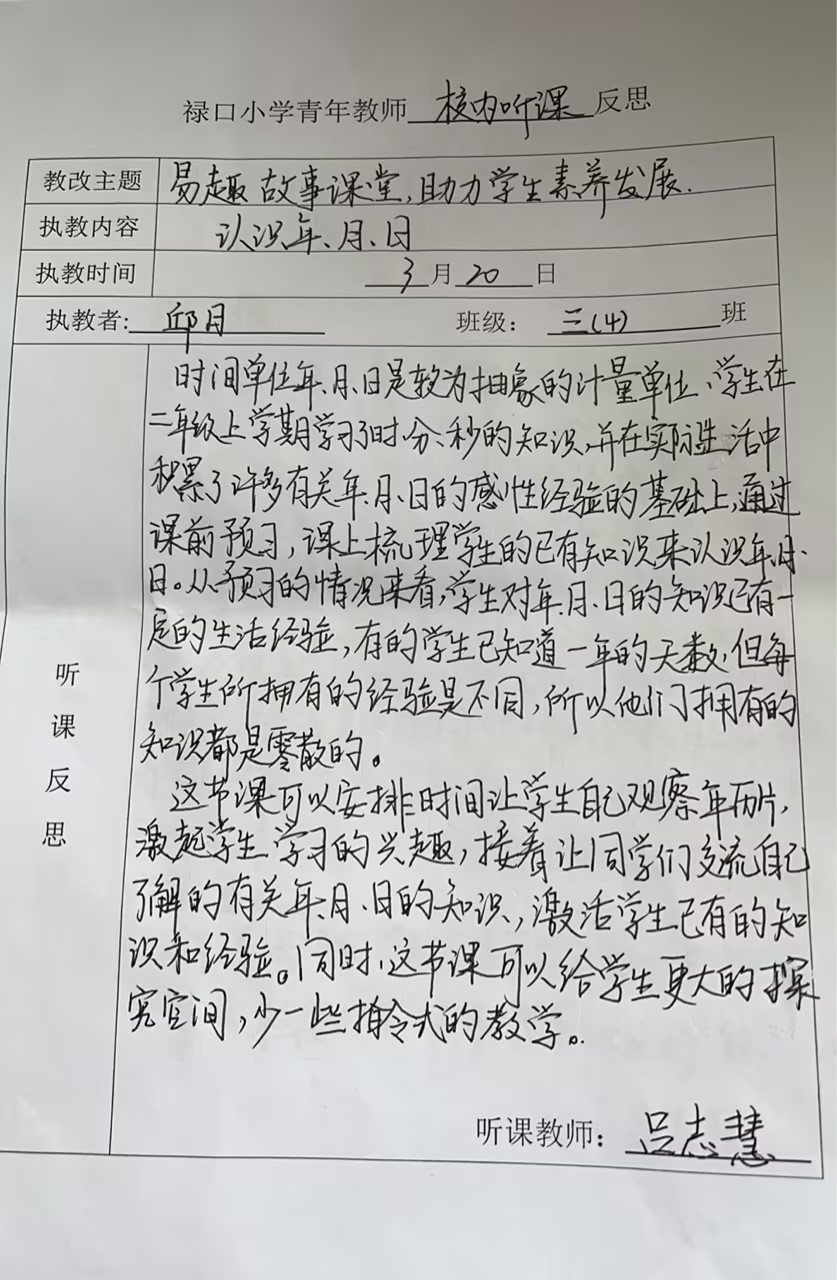 禄口小学青年教师 校内听课 反思
教改主题 易趣故事课堂,助力学生素养发展.
执教内容 认识年、月、日
执教时间 3 月 20 日
执教者: 邱月 班级: 三(4) 班
听课反思
时间单位年、月、日是较为抽象的计量单位、学生在
二年级上学期学习了时、分、秒的知识,并在实际生活中
积累了许多有关年、月、日的感性经验的基础上,通过
课前预习,课上梳理学生的已有知识来认识年、月、
日。从预习的情况来看,学生对年、月、日的知识已有一
定的生活经验,有的学生已知道一年的天数,但每
个学生所拥有的经验是不同,所以他们拥有的
知识都是零散的。
这节课可以安排时间让学生自己观察年历片,
激起学生学习的兴趣,接着让同学们交流自己
了解的有关年、月、日的知识,激活学生已有的知
识和经验。同时,这节课可以给学生更大的探
究空间,少一些指令式的教学。
听课教师: 吕志慧